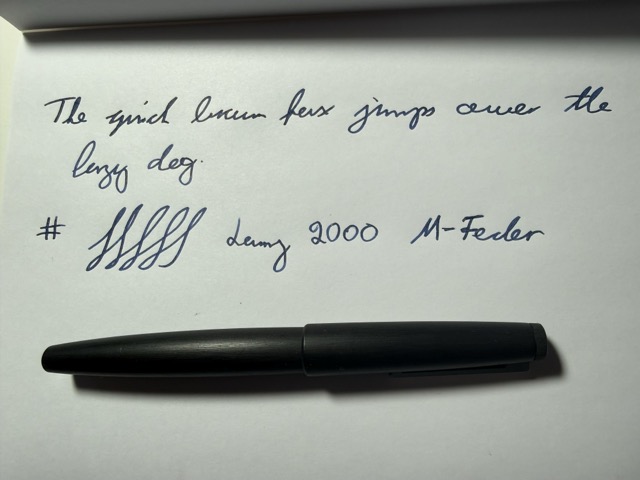 The quick brown fox jumps over the
lazy dog.
# Lamy 2000 M-Feder